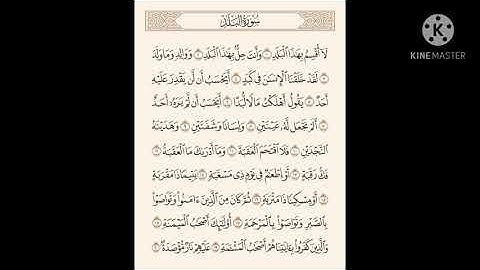 سُورَةُ البَلَدِ
لَآ أُقْسِمُ بِهَٰذَا ٱلْبَلَدِ ۝١ وَأَنتَ حِلٌّۢ بِهَٰذَا ٱلْبَلَدِ ۝٢ وَوَالِدٍ وَمَا وَلَدَ
۝٣ لَقَدْ خَلَقْنَا ٱلْإِنسَٰنَ فِى كَبَدٍ ۝٤ أَيَحْسَبُ أَن لَّن يَقْدِرَ عَلَيْهِ
أَحَدٌ ۝٥ يَقُولُ أَهْلَكْتُ مَالًا لُّبَدًا ۝٦ أَيَحْسَبُ أَن لَّمْ يَرَهُۥٓ أَحَدٌ
۝٧ أَلَمْ نَجْعَل لَّهُۥ عَيْنَيْنِ ۝٨ وَلِسَانًا وَشَفَتَيْنِ ۝٩ وَهَدَيْنَٰهُ
ٱلنَّجْدَيْنِ ۝١٠ فَلَا ٱقْتَحَمَ ٱلْعَقَبَةَ ۝١١ وَمَآ أَدْرَىٰكَ مَا ٱلْعَقَبَةُ ۝١٢
فَكُّ رَقَبَةٍ ۝١٣ أَوْ إِطْعَٰمٌ فِى يَوْمٍ ذِى مَسْغَبَةٍ ۝١٤ يَتِيمًا ذَا مَقْرَبَةٍ
۝١٥ أَوْ مِسْكِينًا ذَا مَتْرَبَةٍ ۝١٦ ثُمَّ كَانَ مِنَ ٱلَّذِينَ ءَامَنُوا۟ وَتَوَاصَوْا۟
بِٱلصَّبْرِ وَتَوَاصَوْا۟ بِٱلْمَرْحَمَةِ ۝١٧ أُو۟لَٰٓئِكَ أَصْحَٰبُ ٱلْمَيْمَنَةِ ۝١٨
وَٱلَّذِينَ كَفَرُوا۟ بِـَٔايَٰتِنَا هُمْ أَصْحَٰبُ ٱلْمَشْـَٔمَةِ ۝١٩ عَلَيْهِمْ نَارٌ مُّؤْصَدَةٌۢ ۝٢٠
KINEMASTER